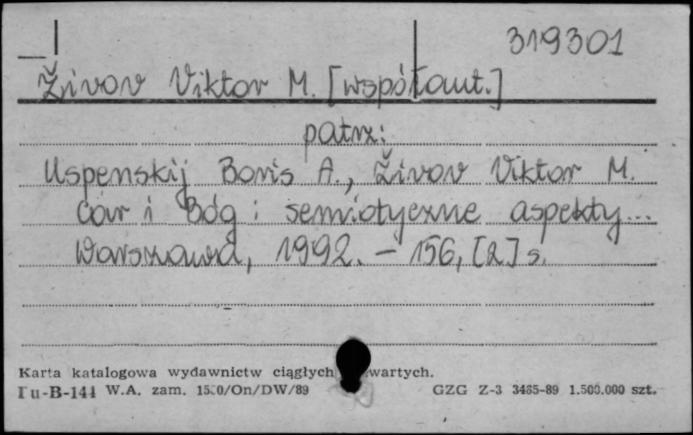 319301
Živov Viktor M. [współaut.]
patrz:
Uspenskij Boris A., Živov Viktor M.
Car i Bóg : semiotyczne aspekty...
Warszawa, 1992. – 156, [2] s.
Karta katalogowa wydawnictw ciągłych wartych.
Pu-B-144 W.A. zam. /On/DW/89 GZG Z-3 3485-89 1.500.000 szt.